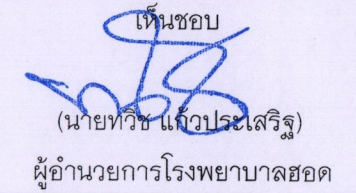 เห็นชอบ
(นายทวิช แก้วประเสริฐ)
ผู้อำนวยการโรงพยาบาลฮอด